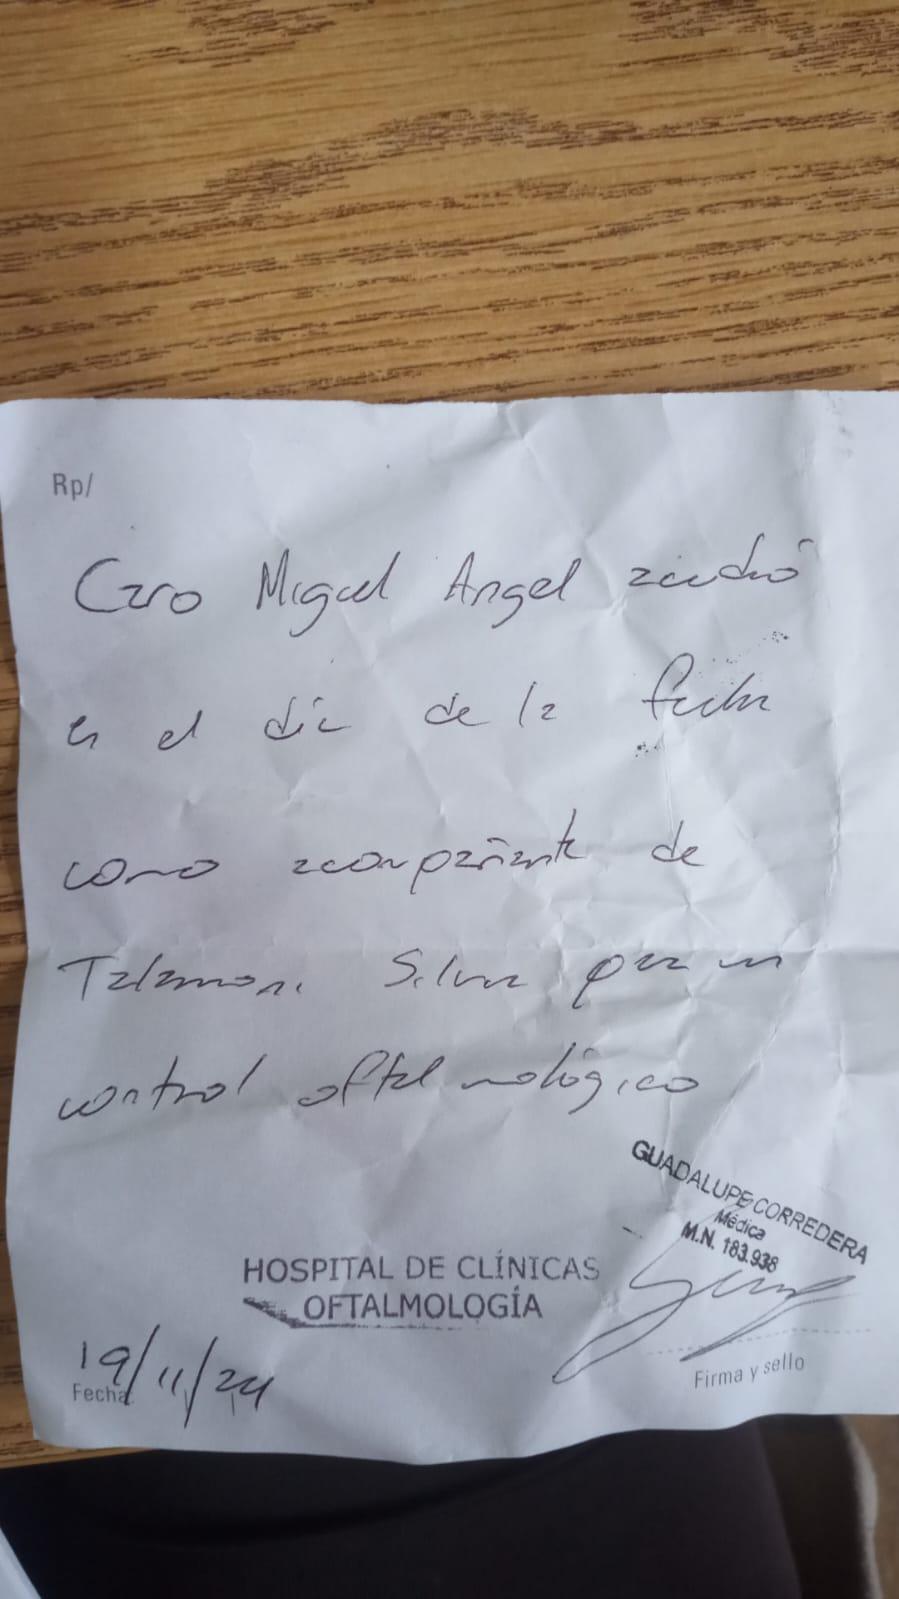 Rp/
Caro Miguel Angel acudió
en el día de la fecha
como acompañante de
Talamoni Silvia para un
control oftalmológico
GUADALUPE CORREDERA
Médica
M.N. 183.938
HOSPITAL DE CLÍNICAS
OFTALMOLOGÍA
19/11/24
Fecha
Firma y sello